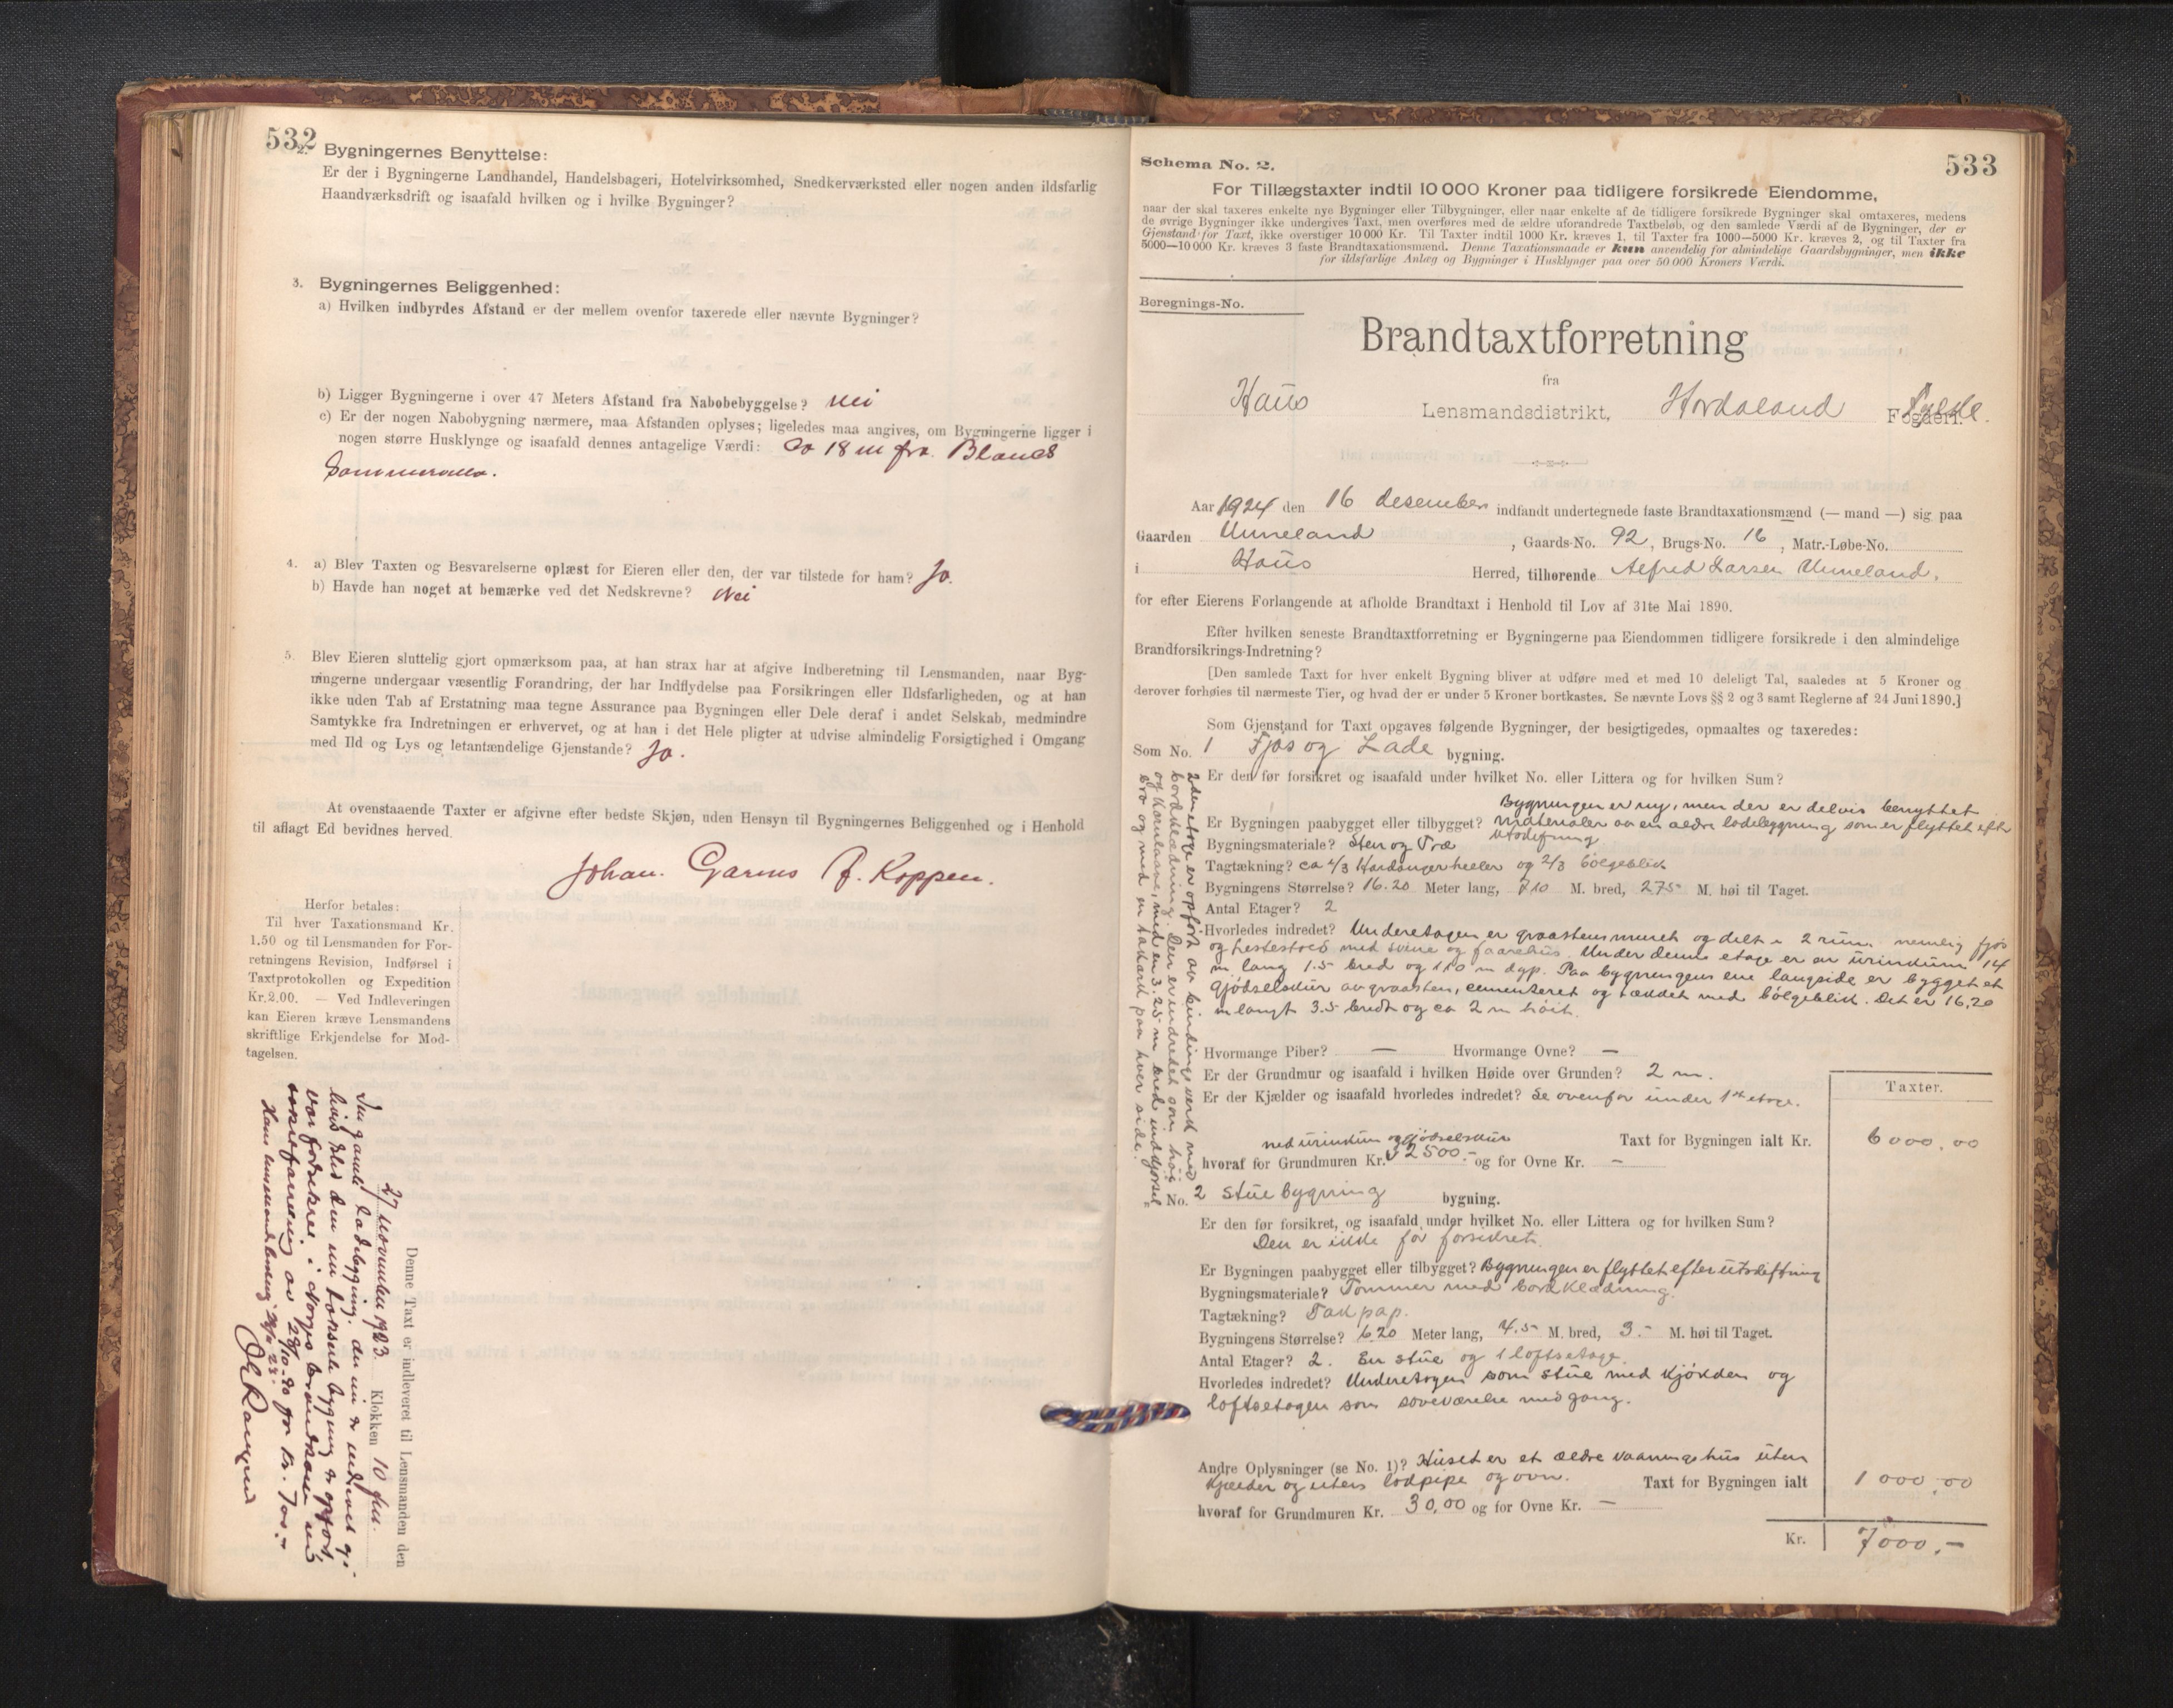 532
2. Bygningernes Benyttelse:
Er der i Bygningerne Landhandel, Handelsbageri, Hotelvirksomhed, Snedkerværksted eller nogen anden ildsfarlig
Haandværksdrift og isaafald hvilken og i hvilke Bygninger?
3. Bygningernes Beliggenhed:
a) Hvilken indbyrdes Afstand er der mellem ovenfor taxerede eller nævnte Bygninger?
b) Ligger Bygningerne i over 47 Meters Afstand fra Nabobebyggelse? Nei
c) Er der nogen Nabobygning nærmere, maa Afstanden oplyses; ligeledes maa angives, om Bygningerne ligger i
nogen større Husklynge og isaafald dennes antagelige Værdi: Ca 18 m fra Blauds
Sommervilla.
4. a) Blev Taxten og Besvarelserne oplæst for Eieren eller den, der var tilstede for ham? Ja.
b) Havde han noget at bemærke ved det Nedskrevne? Nei
5. Blev Eieren sluttelig gjort opmærksom paa, at han strax har at afgive Indberetning til Lensmanden, naar Byg-
ningerne undergaar væsentlig Forandring, der har Indflydelse paa Forsikringen eller Ildsfarligheden, og at han
ikke uden Tab af Erstatning maa tegne Assurance paa Bygningen eller Dele deraf i andet Selskab, medmindre
Samtykke fra Indretningen er erhvervet, og at han i det Hele pligter at udvise almindelig Forsigtighed i Omgang
med Ild og Lys og letantændelige Gjenstande? Ja.
At ovenstaaende Taxter er afgivne efter bedste Skjøn, uden Hensyn til Bygningernes Beliggenhed og i Henhold
til aflagt Ed bevidnes herved.
Johan. Garnes F. Koppen.
Herfor betales:
Til hver Taxationsmand Kr.
1.50 og til Lensmanden for For-
retningens Revision, Indførsel i
Taxtprotokollen og Expedition
Kr. 2.00. — Ved Indleveringen
kan Eieren kræve Lensmandens
skriftlige Erkjendelse for Mod-
tagelsen.
Denne Taxt er indleveret til Lensmanden den
27 november 1923 Klokken 10 fm.
Den gamle ladebygning, der nu er nedrevet og
hvis sted den nu takserte bygning er opført,
var forsikret i Norges brandkasse ved
av 28/10-20 for kr. 700.-
533
Schema No. 2.
For Tillægstaxter indtil 10 000 Kroner paa tidligere forsikrede Eiendomme,
naar der skal taxeres enkelte nye Bygninger eller Tilbygninger, eller naar enkelte af de tidligere forsikrede Bygninger skal omtaxeres, medens
de øvrige Bygninger ikke undergives Taxt, men overføres med de ældre uforandrede Taxtbeløb, og den samlede Værdi af de Bygninger, der er
Gjenstand for Taxt, ikke overstiger 10 000 Kr. Til Taxter indtil 1000 Kr. kræves 1, til Taxter fra 1000—5000 Kr. kræves 2, og til Taxter fra
5000—10 000 Kr. kræves 3 faste Brandtaxationsmænd. Denne Taxationsmaade er kun anvendelig for almindelige Gaardsbygninger, men ikke
for ildsfarlige Anlæg og Bygninger i Husklynger paa over 50 000 Kroners Værdi.
Beregnings-No.
Brandtaxtforretning
fra
Haus Lensmandsdistrikt, Hordaland Fogderi. Fylke.
Aar 1924 den 16 desember indfandt undertegnede faste Brandtaxationsmænd (— mand —) sig paa
Gaarden Unneland, Gaards-No. 92, Brugs-No. 16, Matr.-Løbe-No.
i Haus Herred, tilhørende Alfred Larsen Unneland.
for efter Eierens Forlangende at afholde Brandtaxt i Henhold til Lov af 31te Mai 1890.
Efter hvilken seneste Brandtaxtforretning er Bygningerne paa Eiendommen tidligere forsikrede i den almindelige
Brandforsikrings-Indretning?
[Den samlede Taxt for hver enkelt Bygning bliver at udføre med et med 10 deleligt Tal, saaledes at 5 Kroner og
derover forhøies til nærmeste Tier, og hvad der er under 5 Kroner bortkastes. Se nævnte Lovs §§ 2 og 3 samt Reglerne af 24 Juni 1890.]
Som Gjenstand for Taxt opgaves følgende Bygninger, der besigtigedes, opmaaltes og taxeredes:
Som No. 1 Fjøs og Lade bygning.
Er den før forsikret og isaafald under hvilket No. eller Littera og for hvilken Sum?
Bygningen er ny, men der er delvis benyttet
Er Bygningen paabygget eller tilbygget? materialer av en ældre ladebygning som er flyttet efter
utskiftning.
Bygningsmateriale? Sten og Træ
Tagtækning? ca 1/3 Hardangerheller og 2/3 bølgeblik
Bygningens Størrelse? 16.20 Meter lang, 7.10 M. bred, 2.75 M. høi til Taget.
Antal Etager? 2
Hvorledes indredet? Underetagen er graastensmuret og delt i 2 rum nemlig fjøs
og hestestald med svine og faarehus. Under denne etage er en urinkum 14
m. lang 1.5 bred og 1.10 m dyp. Paa bygningens ene langside er bygget et
gjødselskur av graasten, cementeret og tækket med bølgeblik. Det er 16,20
m langt 3.5 bredt og ca 2 m høit.
2den etage er opført av bindingsverk med
bordklædning. Den er indredet som høi
og kornlave, med en 3.25 m. bred indkjørsel=
bro og med en ladard paa hver side.
Hvormange Piber? — Hvormange Ovne? —
Er der Grundmur og isaafald i hvilken Høide over Grunden? 2 m.
Er der Kjælder og isaafald hvorledes indredet? Se ovenfor under 1ste etage.
Taxter.
med urinkum og gjødselskur Taxt for Bygningen ialt Kr. 6000.00
hvoraf for Grundmuren Kr. 2500.- og for Ovne Kr. —
No. 2 Stuebygning bygning.
Er den før forsikret, og isaafald under hvilket No. eller Littera og for hvilken Sum?
Den er ikke før forsikret.
Er Bygningen paabygget eller tilbygget? Bygningen er flyttet efter utskiftning
Bygningsmateriale? Tømmer med bordklædning.
Tagtækning? Takpap.
Bygningens Størrelse? 6.20 Meter lang, 4.5 M. bred, 3.- M. høi til Taget.
Antal Etager? 2. En stue og 1 loftsetage.
Hvorledes indredet? Underetagen som stue med kjøkken og
loftsetagen som soveværelse med gang.
Andre Oplysninger (se No. 1)? Huset er et ældre vaaningshus uten
kjælder og uten lodpipe og ovn. Taxt for Bygningen ialt 1000.00
hvoraf for Grundmuren Kr. 30,00 og for Ovne Kr. —
Kr. 7000.-